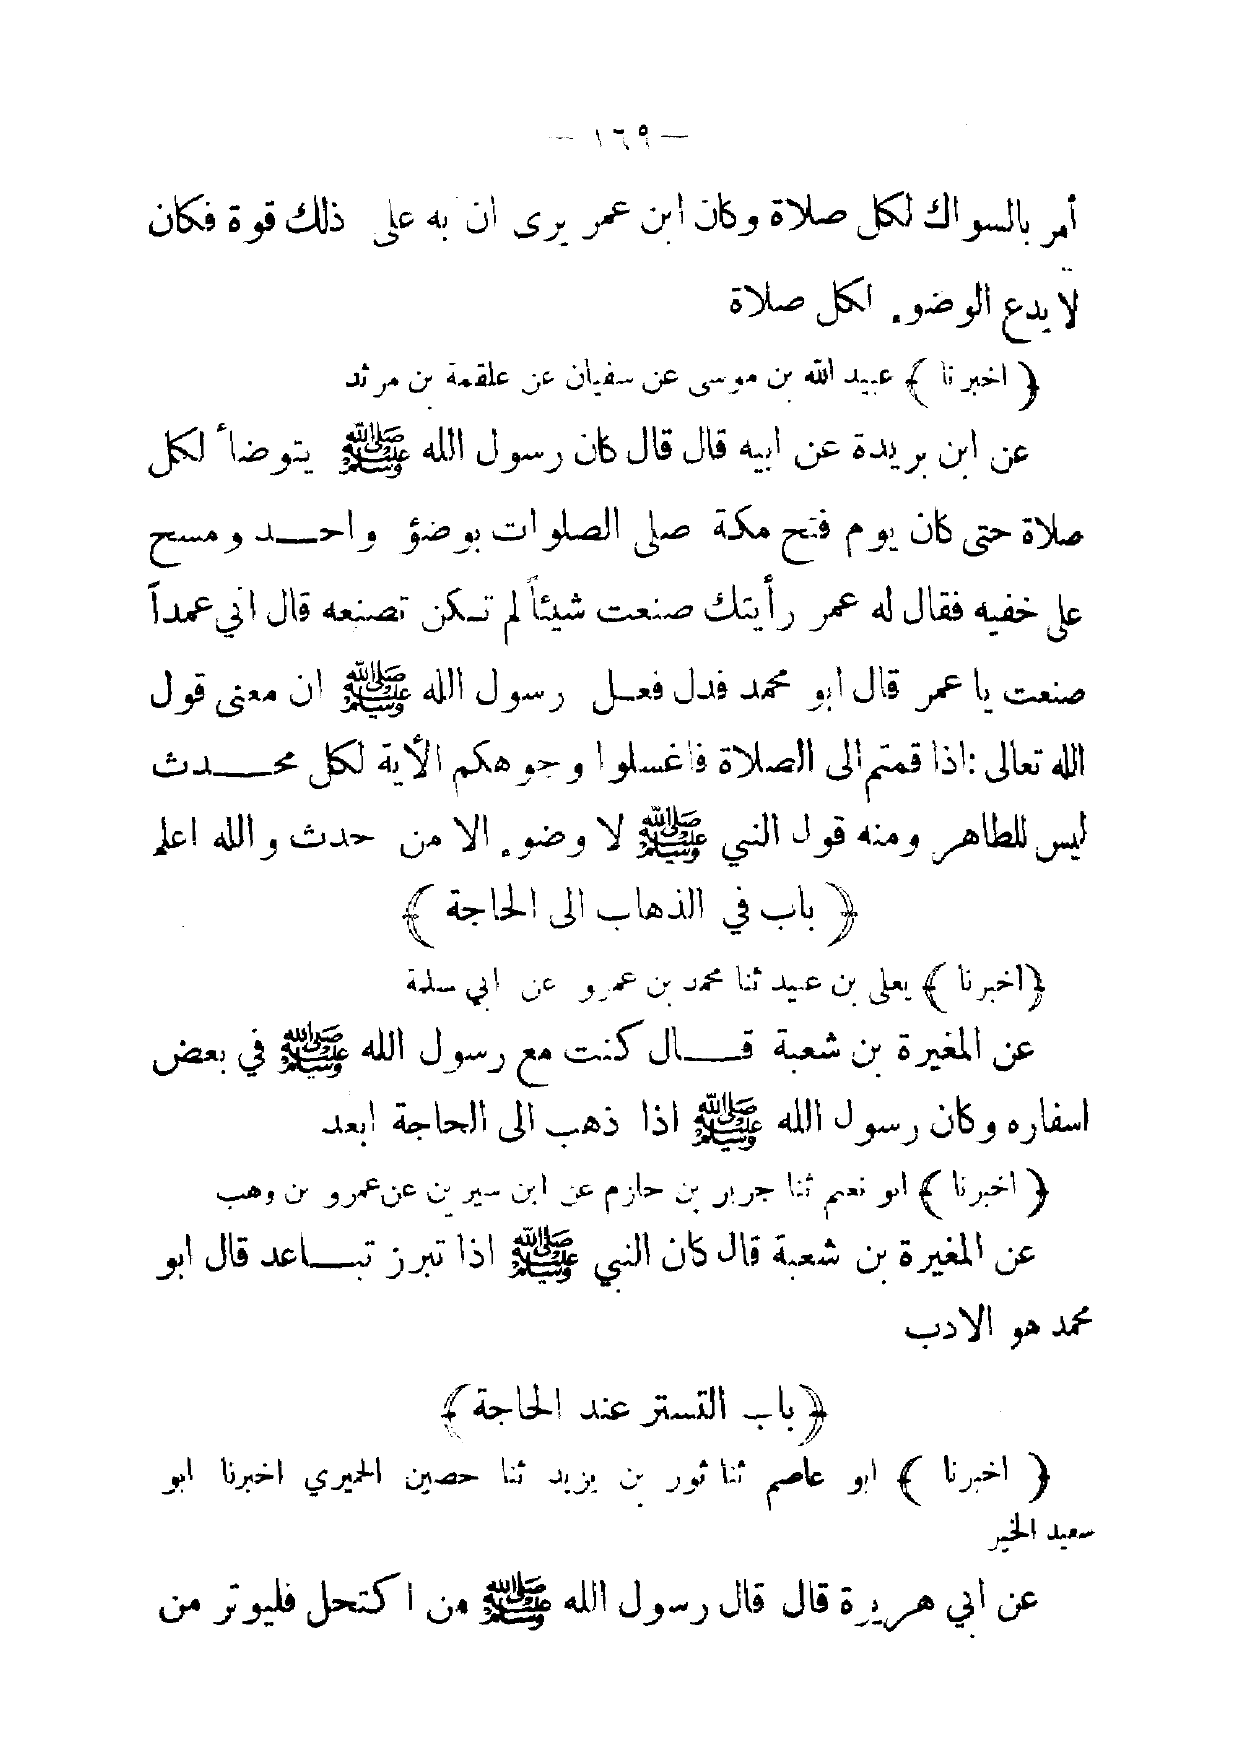 — ١٦٩ —
أمر بالسواك لكل صلاة وكان ابن عمر يرى ان به على ذلك قوة فكان
لا يدع الوضوء لكل صلاة
﴿ اخبرنا ﴾ عبيد الله بن موسى عن سفيان عن علقمة بن مرثد
عن ابن بريدة عن ابيه قال قال كان رسول الله ﷺ يتوضأ لكل
صلاة حتى كان يوم فتح مكة صلى الصلوات بوضؤ واحـــد ومسح
على خفيه فقال له عمر رأيتك صنعت شيئاً لم تكن تصنعه قال اني عمداً
صنعت يا عمر قال ابو محمد فدل فعـل رسول الله ﷺ ان معنى قول
الله تعالى : اذا قمتم الى الصلاة فاغسلوا وجوهكم الأية لكل محـــدث
ليس للطاهر ومنه قول النبي ﷺ لا وضوء الا من حدث والله اعلم
﴿ باب في الذهاب الى الحاجة ﴾
﴿اخبرنا ﴾ يعلى بن عبيد ثنا محمد بن عمرو عن ابي سلمة
عن المغيرة بن شعبة قـــال كنت مع رسول الله ﷺ في بعض
اسفاره وكان رسول الله ﷺ اذا ذهب الى الحاجة ابعد
﴿ اخبرنا ﴾ ابو نعيم ثنا جرير بن حازم عن ابن سيرين عن عمرو بن وهب
عن المغيرة بن شعبة قال كان النبي ﷺ اذا تبرز تبـــاعد قال ابو
محمد هو الادب
﴿ باب التستر عند الحاجة ﴾
﴿ اخبرنا ﴾ ابو عاصم ثنا ثور بن يزيد ثنا حصين الحميري اخبرنا ابو
سعيد الخير
عن ابي هريرة قال قال رسول الله ﷺ من اكتحل فليوتر من